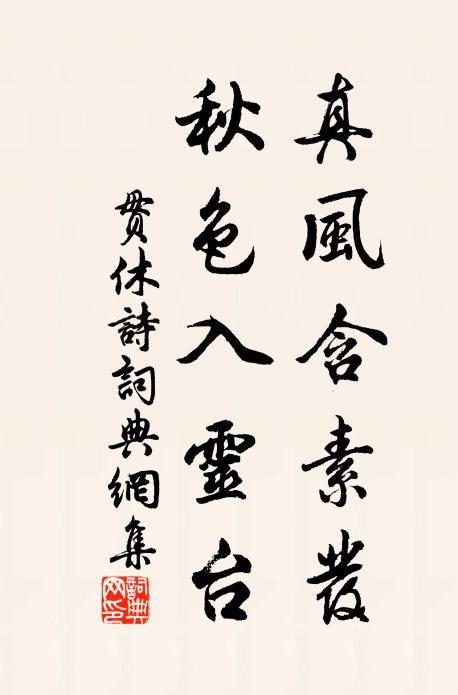 真風含素發
秋色入靈台
貫休詩詞典網集
詞典網印